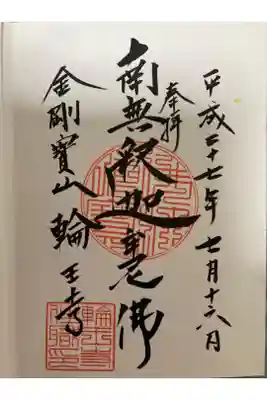 平成二十七年 七月十六八月
奉拝
南無釈迦牟尼佛
金剛寶山輪王寺